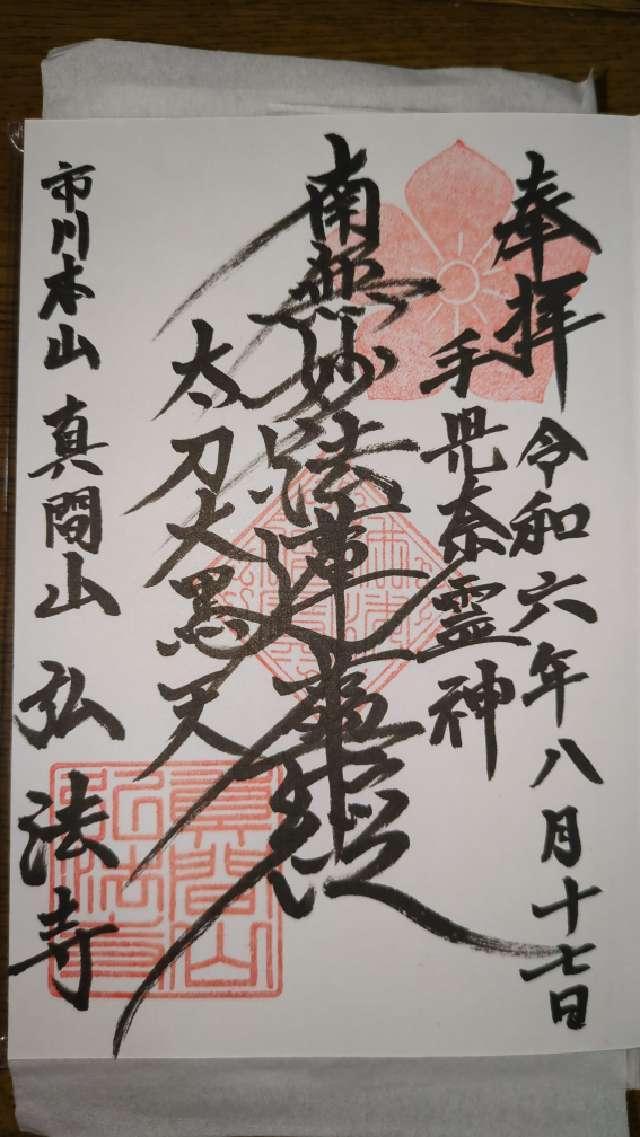 奉拝 令和六年八月十七日
手児奈霊神
南無妙法蓮華経
太刀大黒天
市川本山 真間山 弘法寺
真間山
弘法寺